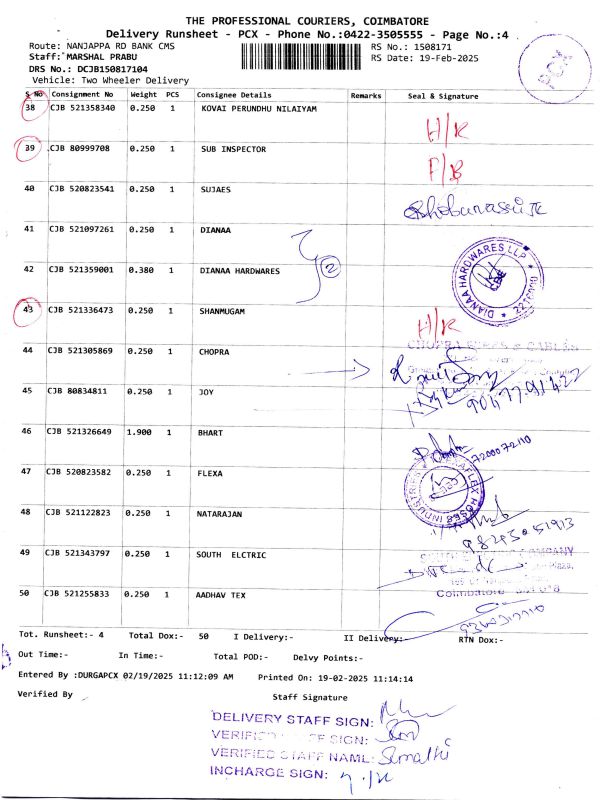 THE PROFESSIONAL COURIERS, COIMBATORE
Delivery Runsheet - PCX - Phone No.:0422-3505555 - Page No.:4
Route: NANJAPPA RD BANK CMS
RS No.: 1508171
Staff: MARSHAL PRABU
RS Date: 19-Feb-2025
DRS No.: DCJB150817104
Vehicle: Two Wheeler Delivery
PCX
S No Consignment No Weight PCS Consignee Details Remarks Seal & Signature
38 CJB 521358340 0.250 1 KOVAI PERUNDHU NILAIYAM H/R
39 CJB 80999708 0.250 1 SUB INSPECTOR F/B
40 CJB 520823541 0.250 1 SUJAES
41 CJB 521097261 0.250 1 DIANAA
42 CJB 521359001 0.380 1 DIANAA HARDWARES 2
DIANAA HARDWARES LLP
CBE
43 CJB 521336473 0.250 1 SHANMUGAM H/R
44 CJB 521305869 0.250 1 CHOPRA
45 CJB 80834811 0.250 1 JOY
46 CJB 521326649 1.900 1 BHART
7200072110
47 CJB 520823582 0.250 1 FLEXA
48 CJB 521122823 0.250 1 NATARAJAN
49 CJB 521343797 0.250 1 SOUTH ELCTRIC
COMPANY
Coimbatore
50 CJB 521255833 0.250 1 AADHAV TEX
Tot. Runsheet:- 4 Total Dox:- 50 I Delivery:- II Delivery:- RTN Dox:-
Out Time:- In Time:- Total POD:- Delvy Points:-
Entered By :DURGAPCX 02/19/2025 11:12:09 AM Printed On: 19-02-2025 11:14:14
Verified By Staff Signature
DELIVERY STAFF SIGN:
VERIFIED STAFF SIGN:
VERIFIED STAFF NAME: Sumathi
INCHARGE SIGN: